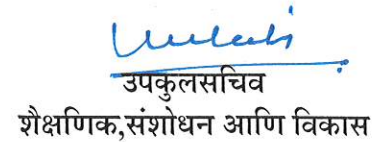 उपकुलसचिव
शैक्षणिक,संशोधन आणि विकास